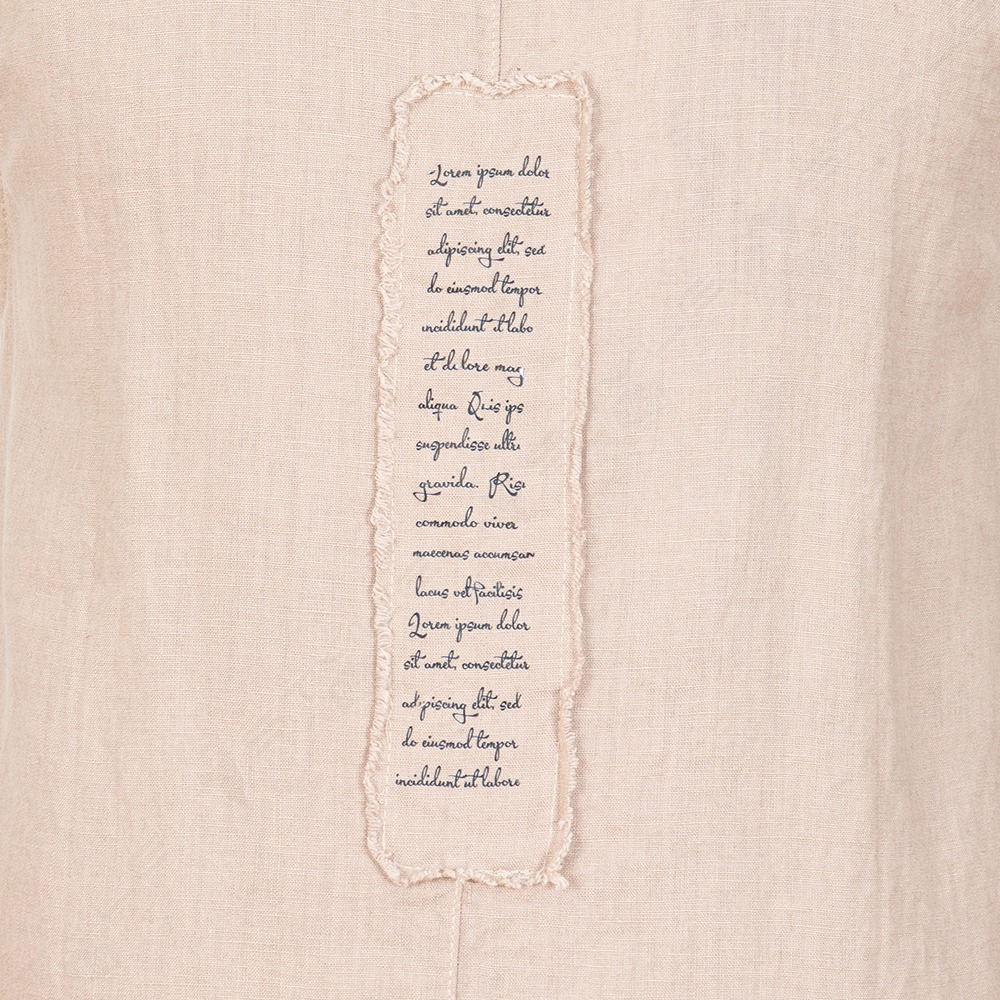 Lorem ipsum dolor
sit amet, consectetur
adipiscing elit, sed
do eiusmod tempor
incididunt ut labo
et do lore mag
aliqua Quis ips
suspendisse ultri
gravida. Risu
commodo viver
maecenas accumsan
lacus vel facilisis
Lorem ipsum dolor
sit amet, consectetur
adipiscing elit, sed
do eiusmod tempor
incididunt ut labore